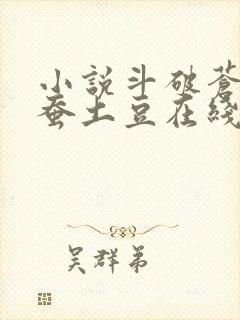 小説斗破蒼
蚕土豆在綫
吴群弟